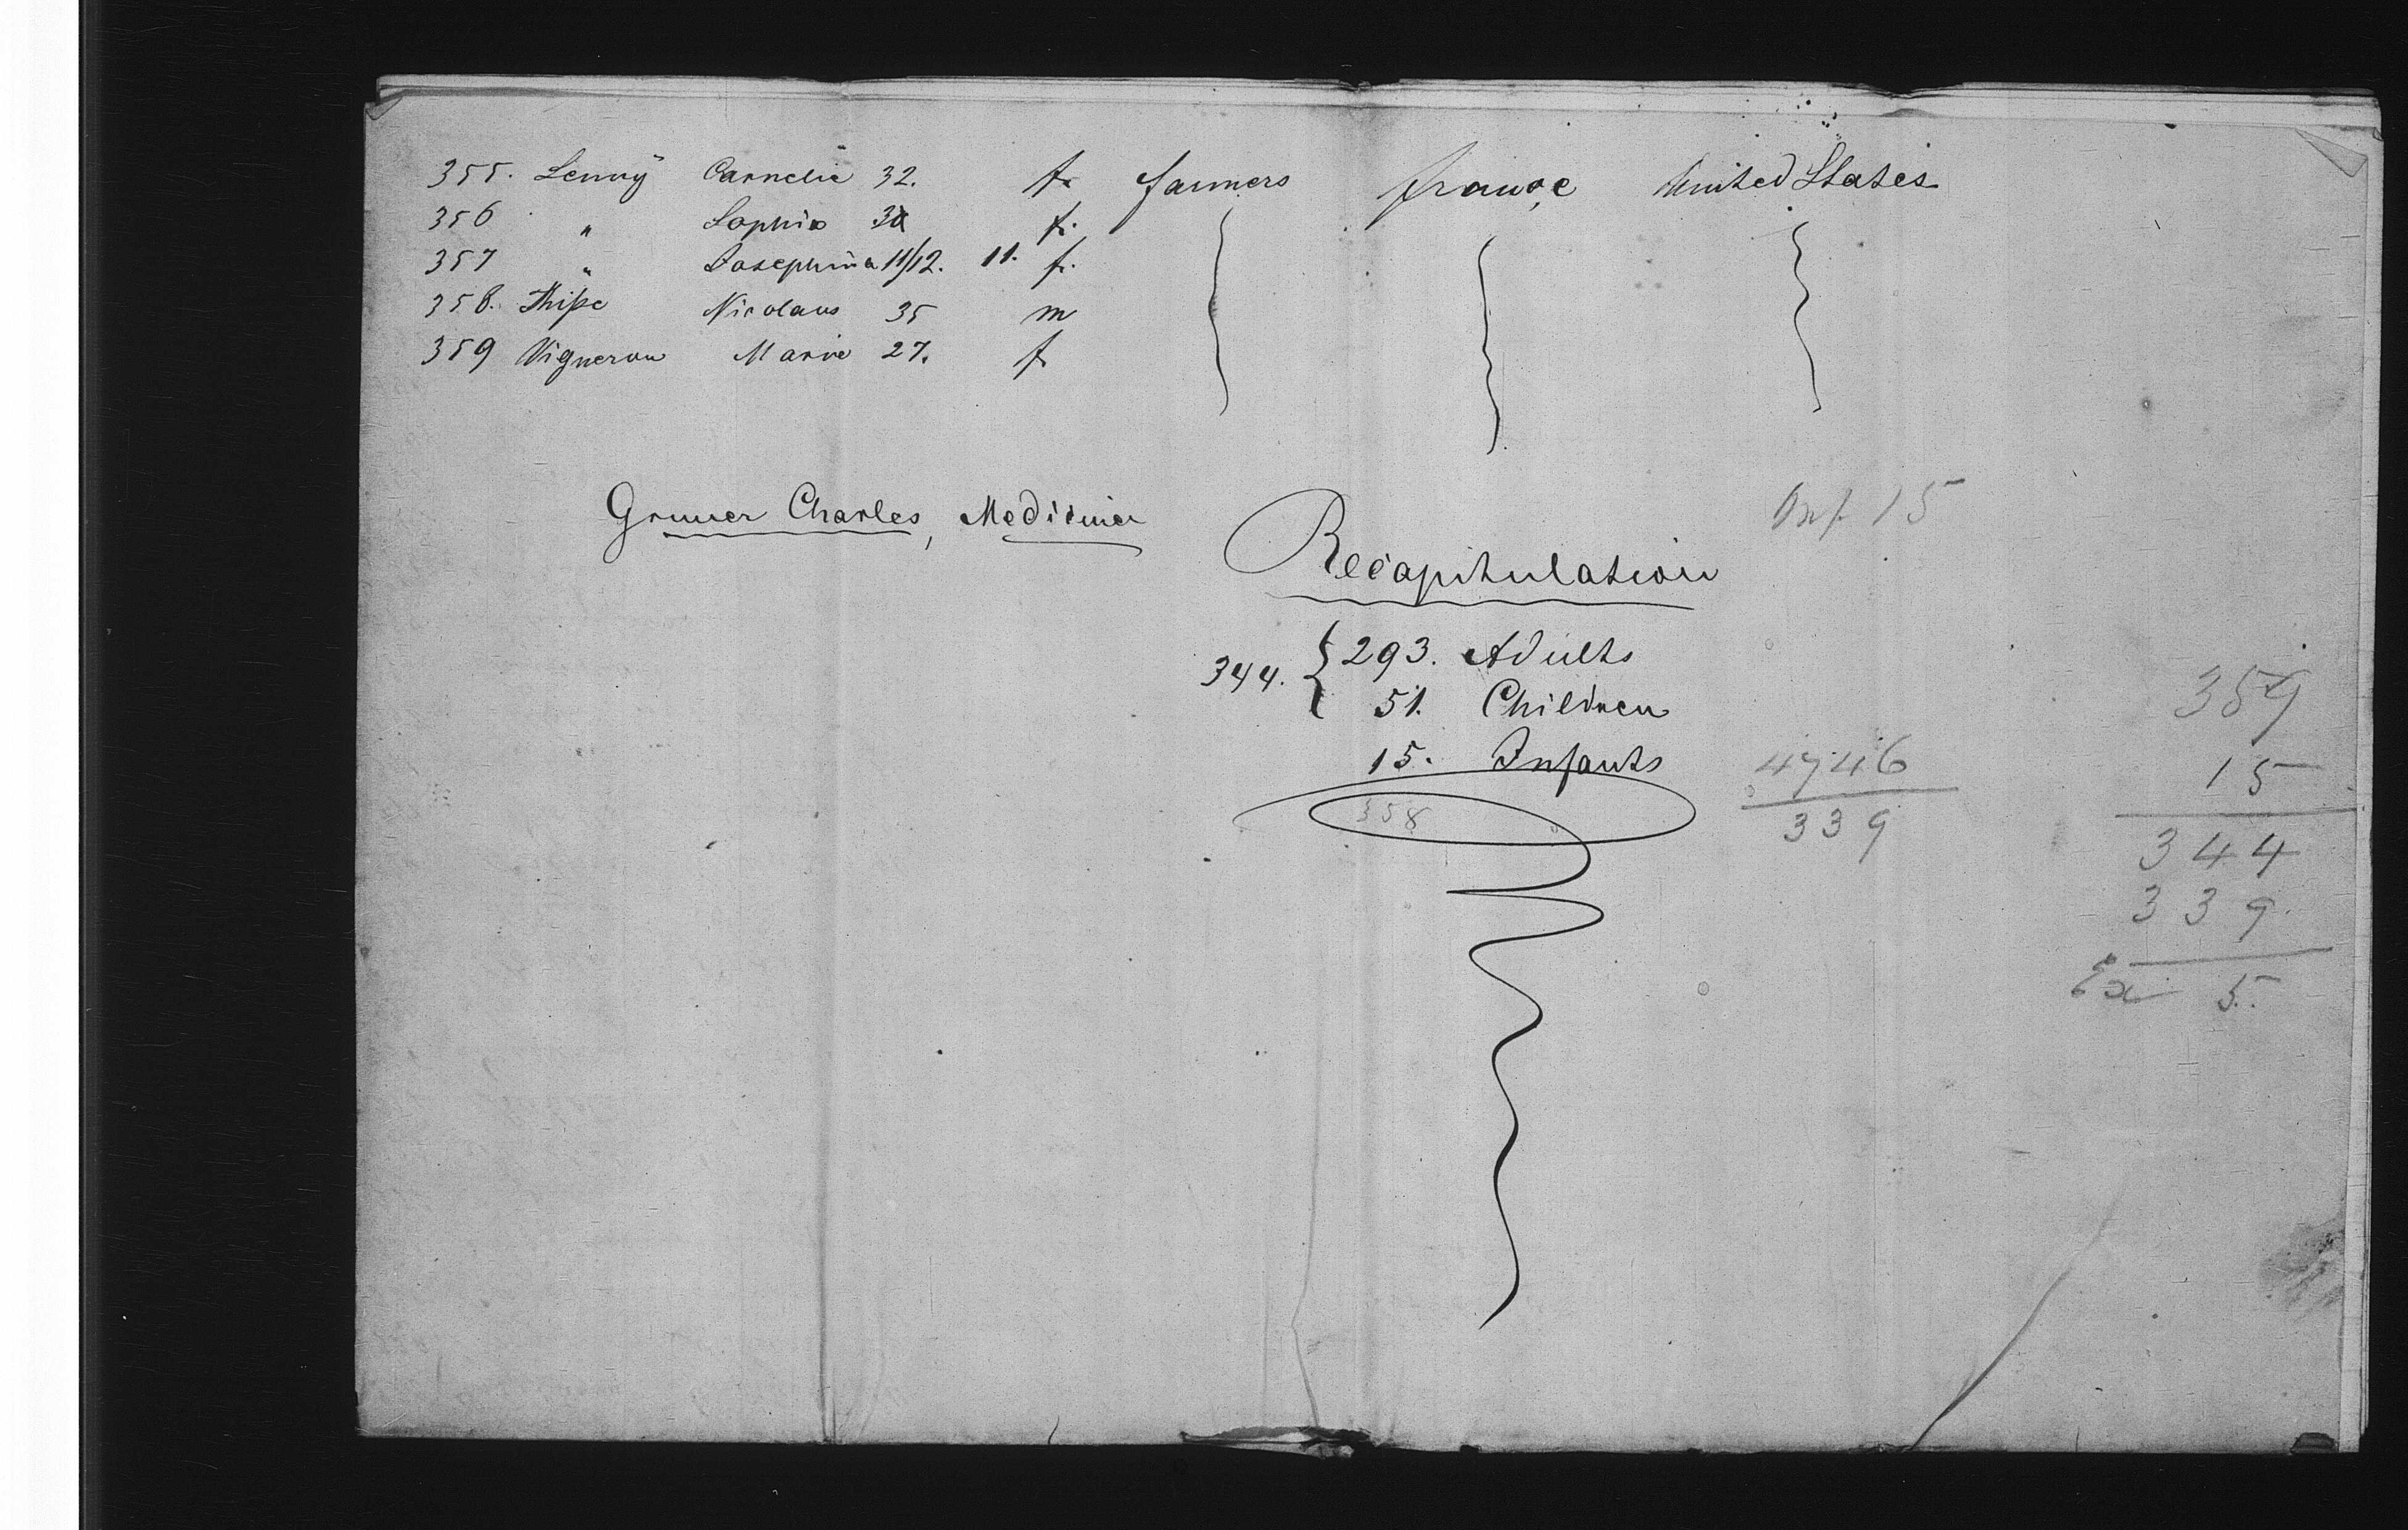 355. Lenny Carnelie 32. f. farmers france United States
356 " Sophia f.
357 " Josephina 11/12. 11. f.
358. Nicolaus 35 m
359 Vigneron Marie 27. f
Gruner Charles, Mediciner
Inf. 15
Recapitulation
344. { 293. Adults
51. Children
15. Infants
358
4746
339
359
15
344
339
Ex 5.